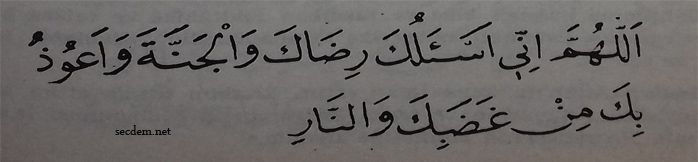 اَللّٰهُمَّ اِنّٖى اَسْئَلُكَ رِضَاكَ وَالْجَنَّةَ وَاَعُوذُ
بِكَ مِنْ غَضَبِكَ وَالنَّارِ
secdem.net